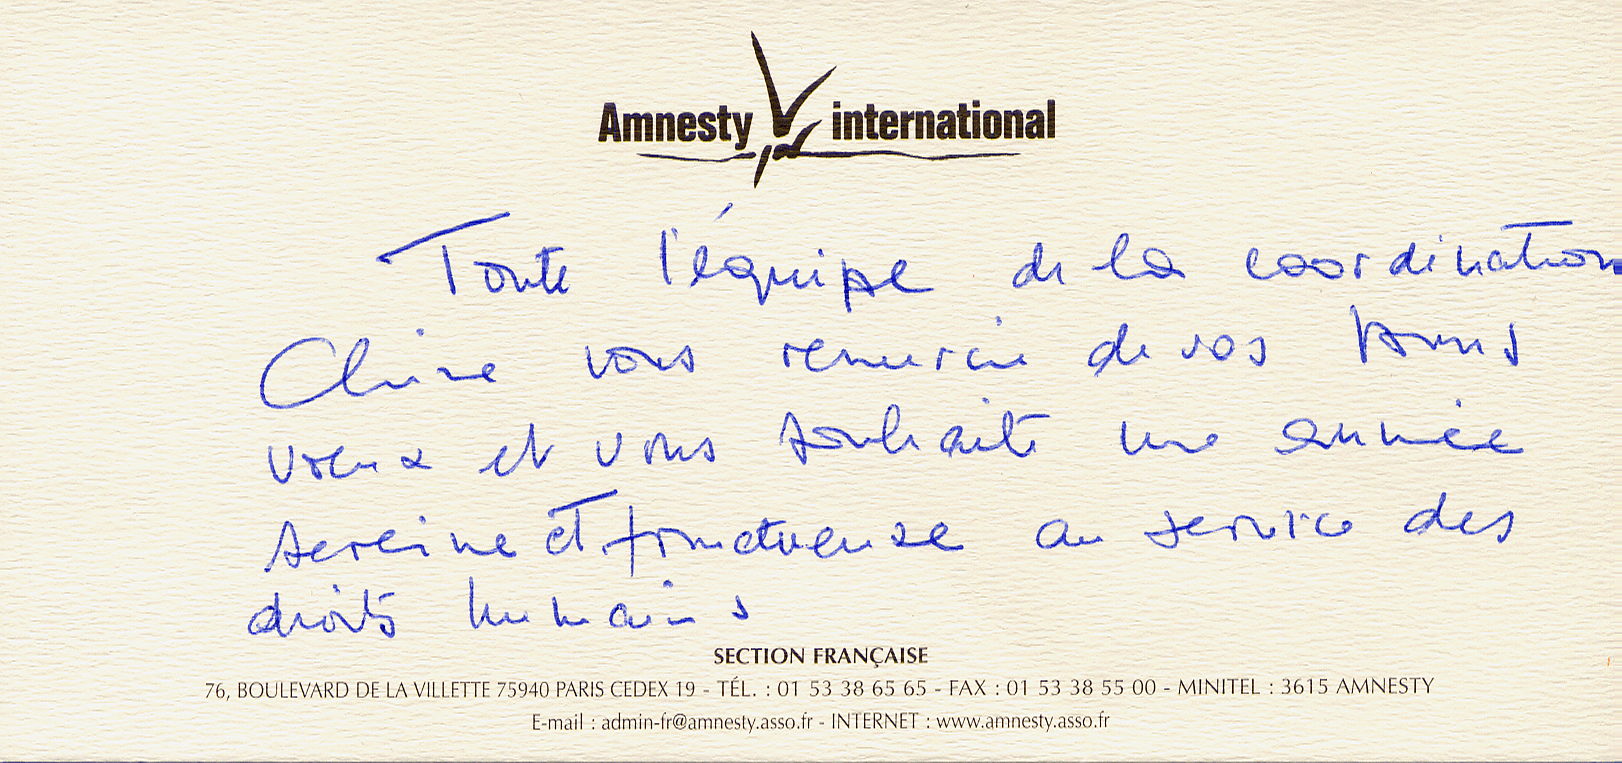 Amnesty international
Toute l'équipe de la coordination
Chine vous remercie de vos bons
voeux et vous souhaite une année
sereine et fructueuse au service des
droits humains
SECTION FRANÇAISE
76, BOULEVARD DE LA VILLETTE 75940 PARIS CEDEX 19 - TÉL. : 01 53 38 65 65 - FAX : 01 53 38 55 00 - MINITEL : 3615 AMNESTY
E-mail : admin-fr@amnesty.asso.fr - INTERNET : www.amnesty.asso.fr